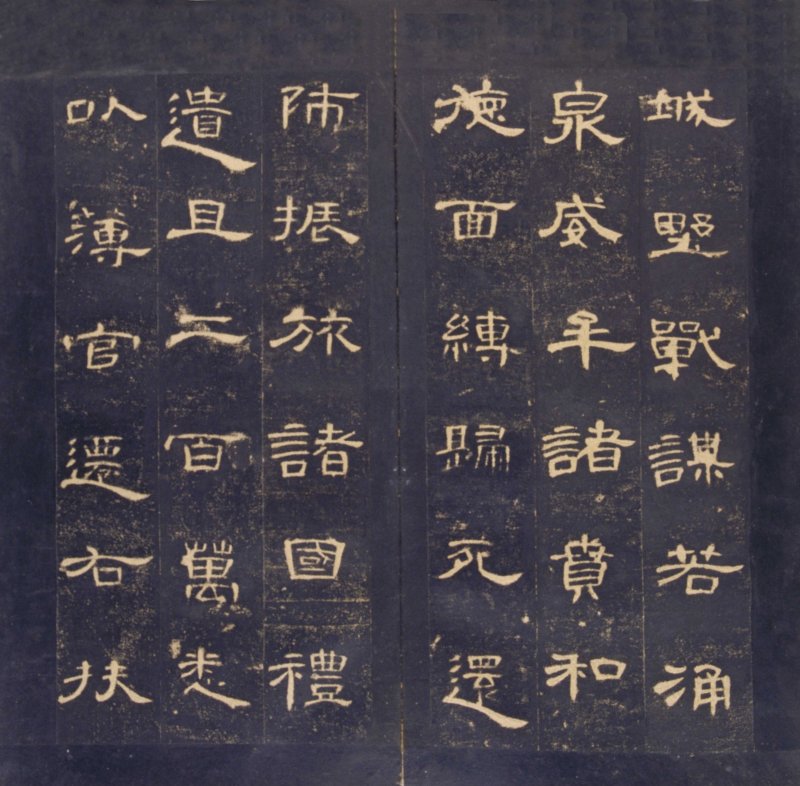 城野戰謀若涌
泉威牟諸賁和
德面縛歸死還
師振旅諸國禮
遺且二百萬悉
以薄官遷右扶